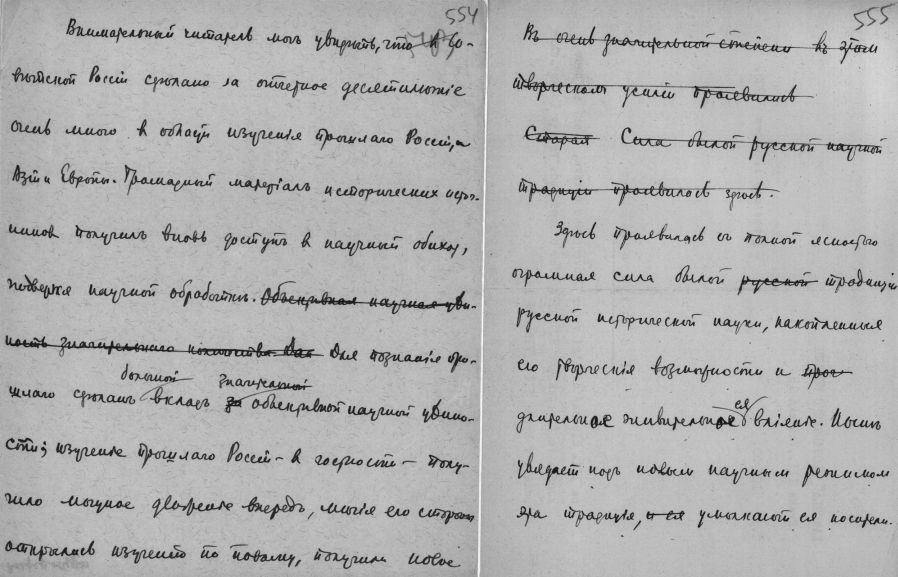 554
Внимательный читатель мог увидеть, что в Со-
вѣтской Россіи сдѣлано за отчетное десятилѣтіе
очень много в области изученія прошлаго Россіи,
Азіи и Европы. Громадный матеріалъ историческихъ источ-
никовъ получилъ вновь доступъ в научный обиход,
подвергся научной обработкѣ. Объективная научная цѣн-
ность значительнаго количества Для познанія про-
большой значительный
шлаго сдѣланъ вкладъ за объективной научной цѣнно-
сти; изученіе прошлаго Россіи – в частности – полу-
чило мощное движеніе впередъ, многія его стороны
открылись изученію по новому, получили новое
555
Въ очень значительной степени въ этом
творческомъ усиліи проявилась
Старая Сила былой русской научной
традиціи проявилось здѣсь.
Здѣсь проявилась съ полной ясностью
огромная сила былой русской традиціи
русской исторической науки, накопленныя
ею творческія возможности и
длительное живительное ея вліяніе. Нынѣ
увядает подъ новымъ научнымъ режимом
эта традиція, и ея умолкают ея носители.